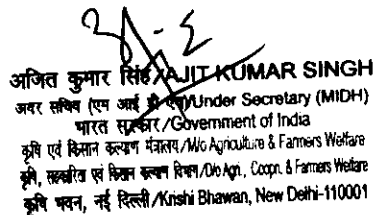 अजित कुमार सिंह/AJIT KUMAR SINGH
अवर सचिव (एम आई डी एच)/Under Secretary (MIDH)
भारत सरकार/Government of India
कृषि एवं किसान कल्याण मंत्रालय/M/o Agriculture & Farmers Welfare
कृषि, सहकारिता एवं किसान कल्याण विभाग/D/o Agri., Coopn. & Farmers Welfare
कृषि भवन, नई दिल्ली/Krishi Bhawan, New Delhi-110001